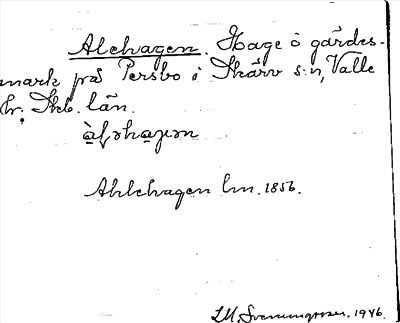 Alehagen. Hage å gärdes-
mark på Persbo i Skärv s:n, Valle
hr, Skb. län.
Ahlehagen lm. 1856.
1946.